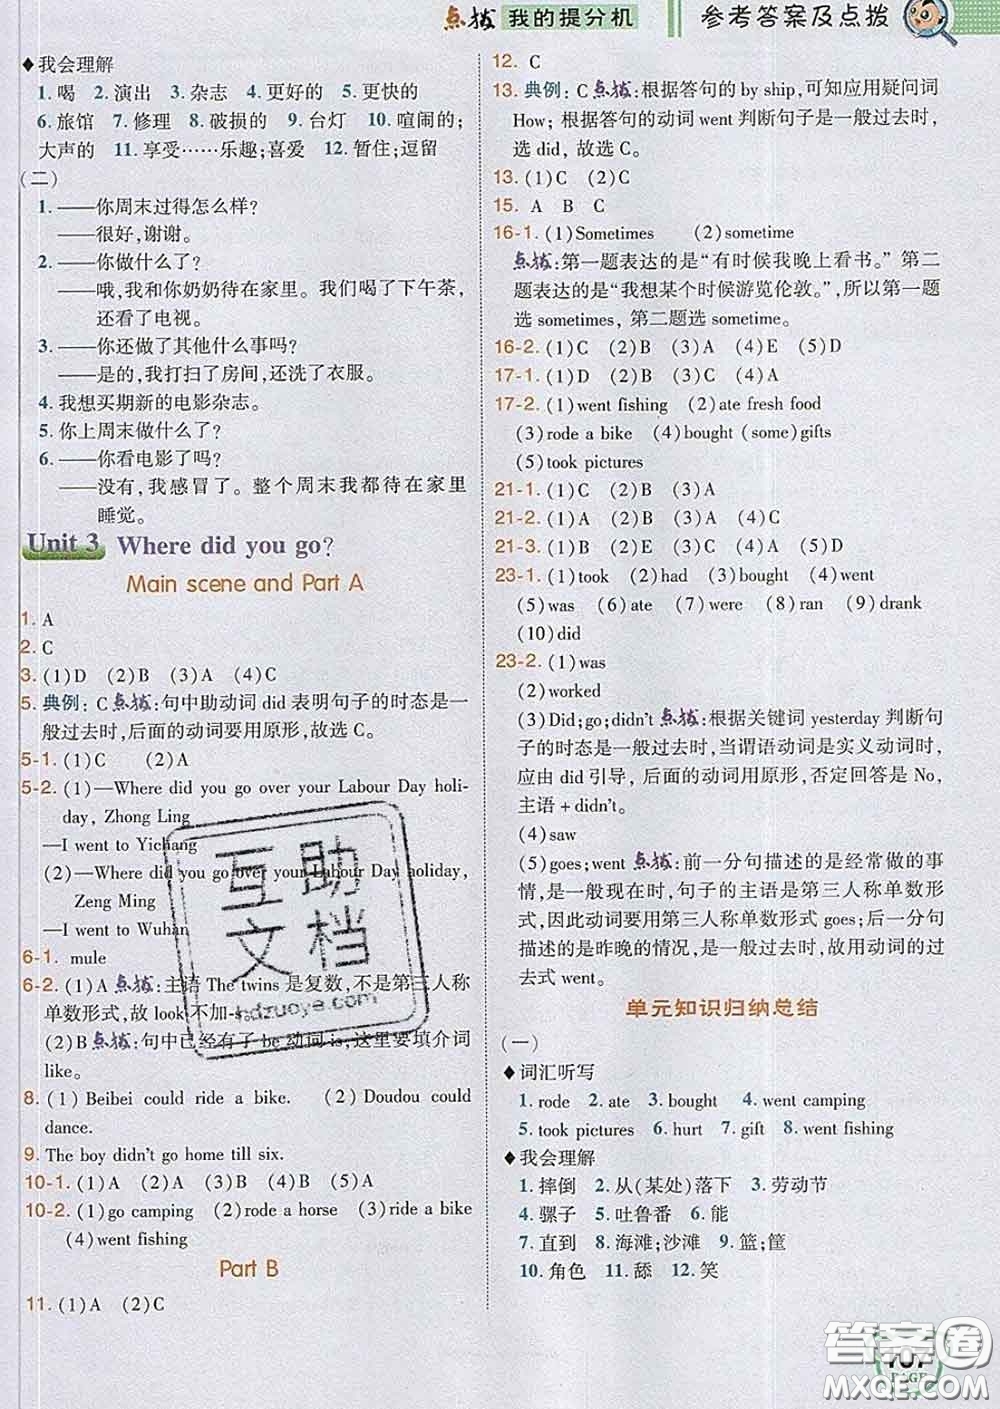 点拨 我的提分机 参考答案及点拨
◆我会理解
1. 喝 2. 演出 3. 杂志 4. 更好的 5. 更快的
6. 旅馆 7. 修理 8. 破损的 9. 台灯 10. 喧闹的;
大声的 11. 享受……乐趣;喜爱 12. 暂住;逗留
(二)
1. ——你周末过得怎么样?
——很好,谢谢。
2. ——你做什么了?
——哦,我和你奶奶待在家里。我们喝了下午茶,
还看了电视。
3. ——你还做了其他什么事吗?
——是的,我打扫了房间,还洗了衣服。
4. 我想买期新的电影杂志。
5. 你上周末做什么了?
6. ——你看电影了吗?
——没有,我感冒了。整个周末我都待在家里
睡觉。
Unit 3 Where did you go?
Main scene and Part A
1. A
2. C
3. (1)D (2)B (3)A (4)C
5. 典例: C 点拨:句中助动词 did 表明句子的时态是一
般过去时,后面的动词要用原形,故选C。
5-1. (1)C (2)A
5-2. (1)—Where did you go over your Labour Day holi-
day, Zhong Ling
—I went to Yichang
(2)—Where did you go over your Labour Day holiday,
Zeng Ming
—I went to Wuhan
6-1. mule
6-2. (1)A 点拨:主语 The twins 是复数,不是第三人称
单数形式,故 look 不加-s。
(2)B 点拨:句中已经有了 be 动词 is,这里要填介词
like。
8. (1) Beibei could ride a bike. (2) Doudou could
dance.
9. The boy didn't go home till six.
10-1. (1)A (2)A (3)B (4)B (5)A
10-2. (1)go camping (2)rode a horse (3)ride a bike
(4)went fishing
Part B
11. (1)A (2)C
12. C
13. 典例: C 点拨:根据答句的 by ship, 可知应用疑问词
How; 根据答句的动词 went 判断句子是一般过去时,
选 did, 故选 C。
13. (1)C (2)C
15. A B C
16-1. (1)Sometimes (2)sometime
点拨:第一题表达的是“有时候我晚上看书。”第二
题表达的是“我想某个时候游览伦敦。”,所以第一题
选 sometimes, 第二题选 sometime。
16-2. (1)C (2)B (3)A (4)E (5)D
17-1. (1)D (2)B (3)C (4)A
17-2. (1)went fishing (2)ate fresh food
(3)rode a bike (4)bought (some)gifts
(5)took pictures
21-1. (1)C (2)B (3)A
21-2. (1)A (2)B (3)A (4)C
21-3. (1)B (2)E (3)A (4)D (5)C
23-1. (1)took (2)had (3)bought (4)went
(5)was (6)ate (7)were (8)ran (9)drank
(10)did
23-2. (1)was
(2)worked
(3)Did;go;didn't 点拨:根据关键词 yesterday 判断句
子的时态是一般过去时,当谓语动词是实义动词时,
应由 did 引导, 后面的动词用原形,否定回答是 No,
主语 + didn't。
(4)saw
(5)goes;went 点拨:前一分句描述的是经常做的事
情,是一般现在时,句子的主语是第三人称单数形
式,因此动词要用第三人称单数形式 goes;后一分句
描述的是昨晚的情况,是一般过去时,故用动词的过
去式 went。
单元知识归纳总结
(一)
◆词汇听写
1. rode 2. ate 3. bought 4. went camping
5. took pictures 6. hurt 7. gift 8. went fishing
◆我会理解
1. 摔倒 2. 从(某处)落下 3. 劳动节
4. 骡子 5. 吐鲁番 6. 能
7. 直到 8. 海滩;沙滩 9. 篮;筐
10. 角色 11. 舔 12. 笑
互助
文档
hdzuoye.com
答案圈
MXQE.COM
PAGE